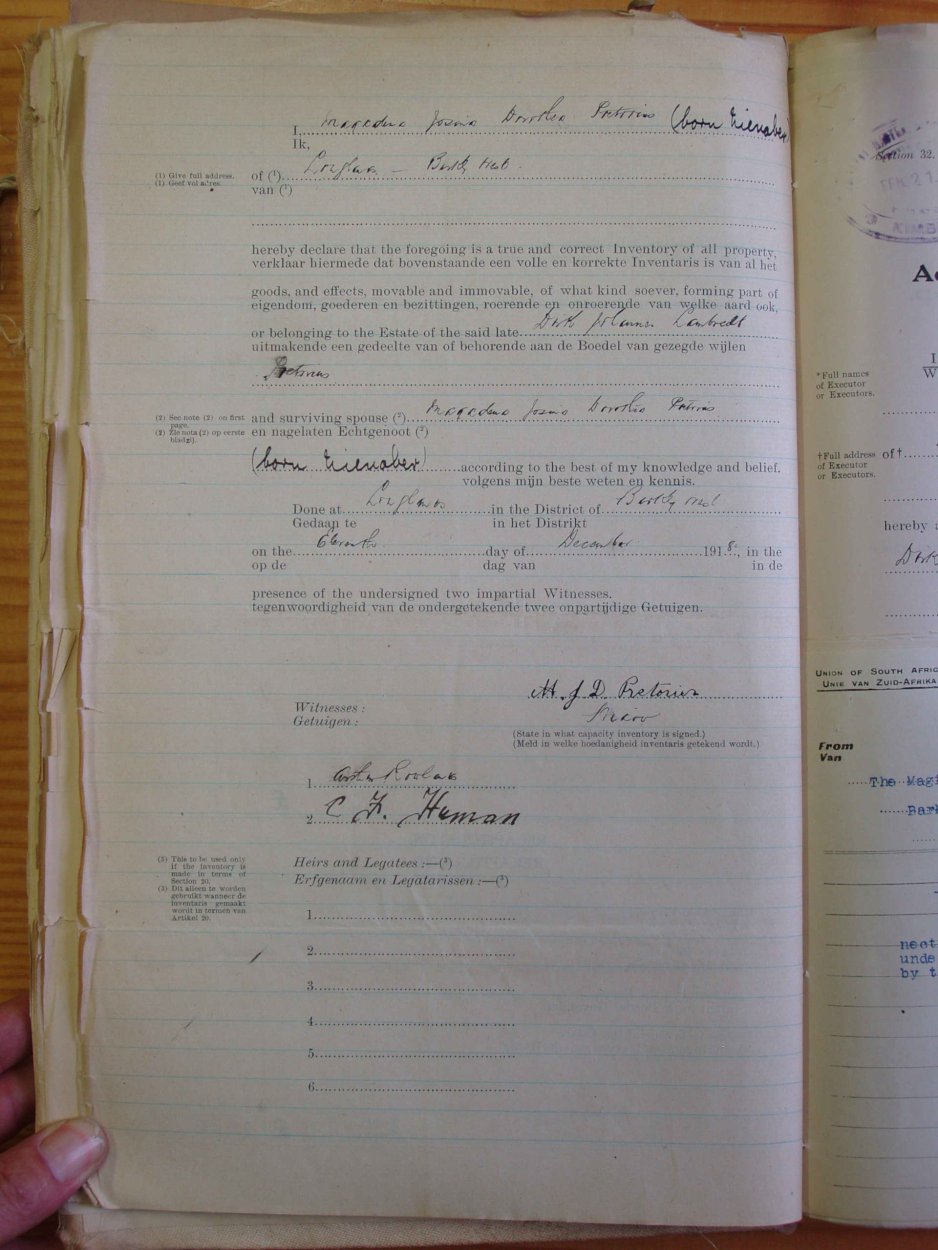 I, Magdalena Josina Dorothea Pretorius (born Nienaber)
Ik,
(1) Give full address.
(1) Geef vol adres.
of (1) Longlands – Barkly West.
van (1)
hereby declare that the foregoing is a true and correct Inventory of all property,
verklaar hiermede dat bovenstaande een volle en korrekte Inventaris is van al het
goods, and effects, movable and immovable, of what kind soever, forming part of
eigendom, goederen en bezittingen, roerende en onroerende van welke aard ook,
or belonging to the Estate of the said late Dirk Johannes Lambrecht
uitmakende een gedeelte van of behorende aan de Boedel van gezegde wijlen
Pretorius
(2) See note (2) on first
page.
(2) Zie nota (2) op eerste
bladzij.
and surviving spouse (2) Magdalena Josina Dorothea Pretorius
en nagelaten Echtgenoot (2)
(born Nienaber) according to the best of my knowledge and belief.
volgens mijn beste weten en kennis.
Done at Longlands in the District of Barkly West
Gedaan te in het Distrikt
on the Eleventh day of December 1918, in the
op de dag van in de
presence of the undersigned two impartial Witnesses.
tegenwoordigheid van de ondergetekende twee onpartijdige Getuigen.
M. J. D. Pretorius
Witnesses :
Getuigen :
(State in what capacity inventory is signed.)
(Meld in welke hoedanigheid inventaris getekend wordt.)
1. Arthur
2. C. F. Human
(3) This to be used only
if the inventory is
made in terms of
Section 20.
(3) Dit alleen te worden
gebruikt wanneer de
inventaris gemaakt
wordt in termen van
Artikel 20.
Heirs and Legatees :—(3)
Erfgenaam en Legatarissen :—(3)
1.
2.
3.
4.
5.
6.
Section 32.
KIMB
*Full names
of Executor
or Executors.
†Full address
of Executor
or Executors.
of†
hereby
UNION OF SOUTH AFRIC
UNIE VAN ZUID-AFRIKA
From
Van
The Magi
Bark
neet
unde
by t